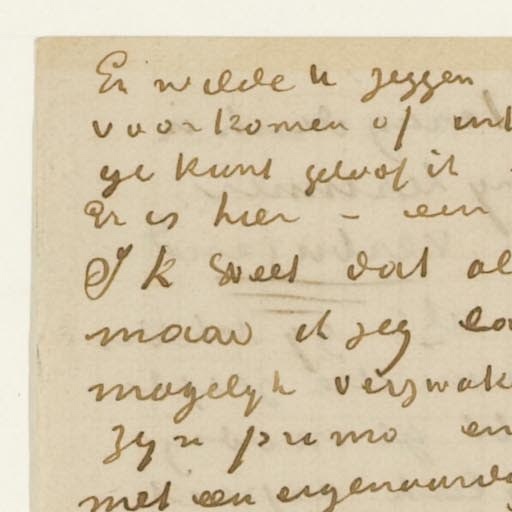 En wilde u zeggen
voorkomen of
ge kunt geloof ik
Er is hier – een
Ik weet dat
maar ik zeg
mogelyk verzwak
zyn primo en
met een eigenaardig